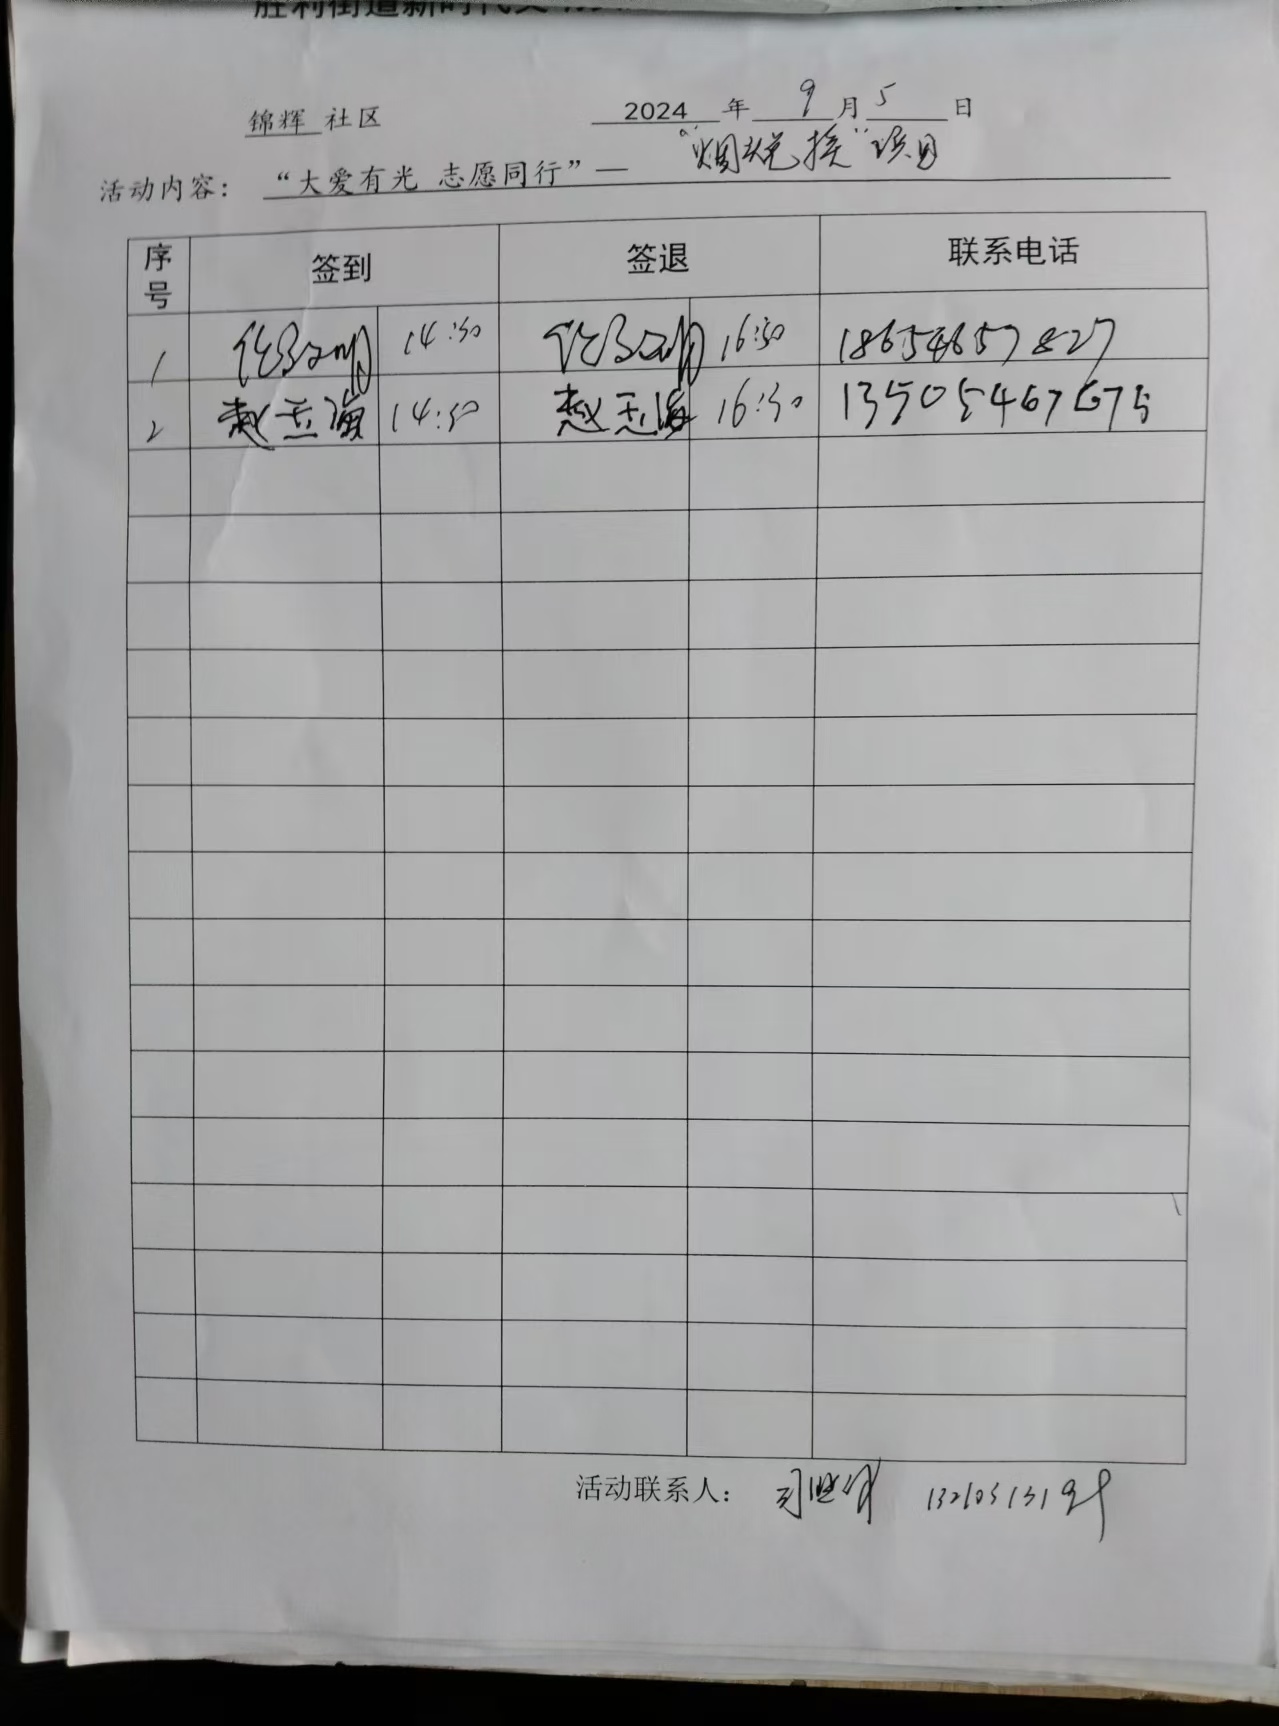 胜利街道新时代文明
锦辉 社区 2024 年 9 月 5 日
活动内容： “大爱有光 志愿同行”— “烟蒂兑换”项目
序号 签到 签退 联系电话
1 14:30 16:30 18654657827
2 赵玉海 14:30 赵玉海 16:30 13505467675
活动联系人：